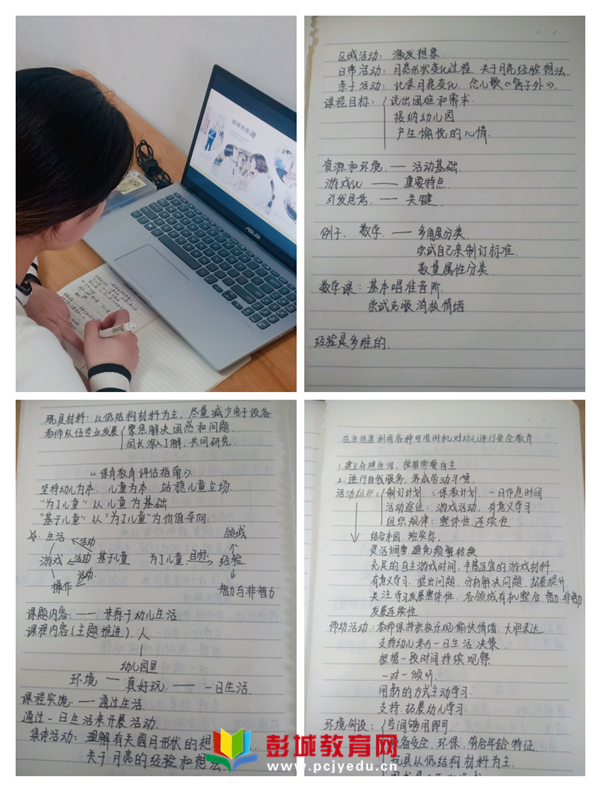 ASUS
区域活动：激发想象
日常活动：月亮形状变化过程 关于月亮经验想法
亲子活动：记录月亮变化，念儿歌
课程目标：说出困难和需求
接纳幼儿园
产生愉悦的心情
资源和环境 —— 活动基础
游戏化 —— 重要特点
引发思考 —— 关键
例子：数学 —— 多角度分类
尝试自己来制订标准
数量属性分类
数学课：基本唱准音阶
尝试克服消极情绪
经验是多维的
玩具材料：以低结构材料为主，尽量减少电子设备
教师队伍专业发展 聚焦解决困惑和问题
园长深入了解，共同研究
《保育教育评估指南》
坚持幼儿为本，儿童为本，站稳儿童立场
"为了儿童"以儿童为基础
"基于儿童"以"为了儿童"为价值导向
生活 活动 领域
游戏 活动 基于儿童 为了儿童 目标 经验
操作 活动 智力与非智力
课题内容 —— 来源于幼儿生活
课程内容（主题推进）人
幼儿园里
环境 — 真好玩 —— 一日生活
课程实施 — 通过生活
通过一日生活来开展活动
集体活动：理解有关圆月形状的想
关于月亮的经验和想法
在生活里利用各种可用时机对幼儿进行安全教育
1.建立合理生活，根据需要自主
2.进行自我服务，养成劳动习惯
活动组织：制订计划：保教计划 一日作息时间
活动途径：游戏活动，有意义学习
组织规律：整体性，连续性
结合本园、班实际
灵活调整 避免频繁转换
充足的自主游戏时间，丰富适宜的游戏材料
有意义学习，提出问题，分析解决问题，拓展提升
关注学习发展整体性，各领域有机整合，智力非智力
发展连续性
师幼活动：教师保持积极乐观愉快情绪，大胆表达
支持幼儿参与一日生活决策
根据一段时间持续观察
一对一倾听
用新的方式主动学习
支持 拓展幼儿学习
环境创设：空间够用即可
安全，环保，符合年龄特征
玩具以低结构材料为主
彭城教育网
www.pcjyedu.cn